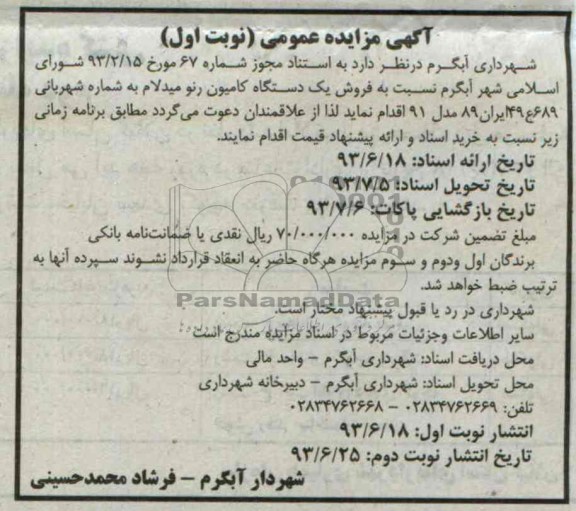 آگهی مزایده عمومی (نوبت اول)
شهرداری آبگرم درنظر دارد به استناد مجوز شماره ۶۷ مورخ ۹۳/۲/۱۵ شورای
اسلامی شهر آبگرم نسبت به فروش یک دستگاه کامیون رنو میدلام به شماره شهربانی
۶۸۹ع۴۹ایران۸۹ مدل ۹۱ اقدام نماید لذا از علاقمندان دعوت می‌گردد مطابق برنامه زمانی
زیر نسبت به خرید اسناد و ارائه پیشنهاد قیمت اقدام نمایند.
تاریخ ارائه اسناد: ۹۳/۶/۱۸
تاریخ تحویل اسناد: ۹۳/۷/۵
تاریخ بازگشایی پاکات: ۹۳/۷/۶
مبلغ تضمین شرکت در مزایده ۷۰/۰۰۰/۰۰۰ ریال نقدی یا ضمانت‌نامه بانکی
برندگان اول ودوم و سوم مزایده هرگاه حاضر به انعقاد قرارداد نشوند سپرده آنها به
ترتیب ضبط خواهد شد.
ParsNamadData
شهرداری در رد یا قبول پیشنهاد مختار است.
سایر اطلاعات وجزئیات مربوط در اسناد مزایده مندرج است.
محل دریافت اسناد: شهرداری آبگرم – واحد مالی
محل تحویل اسناد: شهرداری آبگرم – دبیرخانه شهرداری
تلفن: ۰۲۸۳۴۷۶۲۶۶۹ – ۰۲۸۳۴۷۶۲۶۶۸
انتشار نوبت اول: ۹۳/۶/۱۸
تاریخ انتشار نوبت دوم: ۹۳/۶/۲۵
شهردار آبگرم – فرشاد محمدحسینی